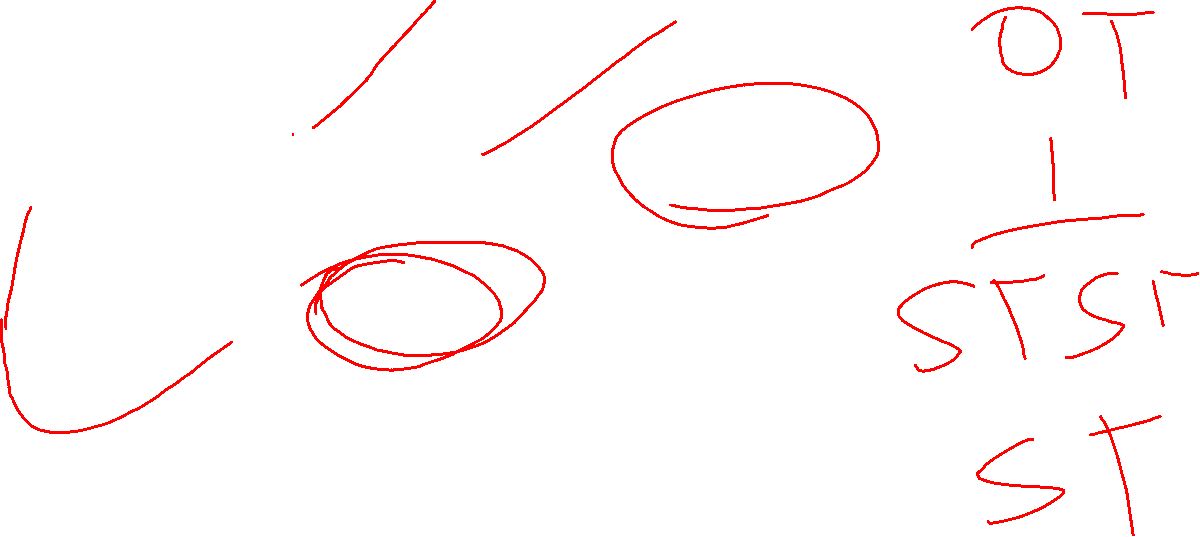 OT
1
STST
ST